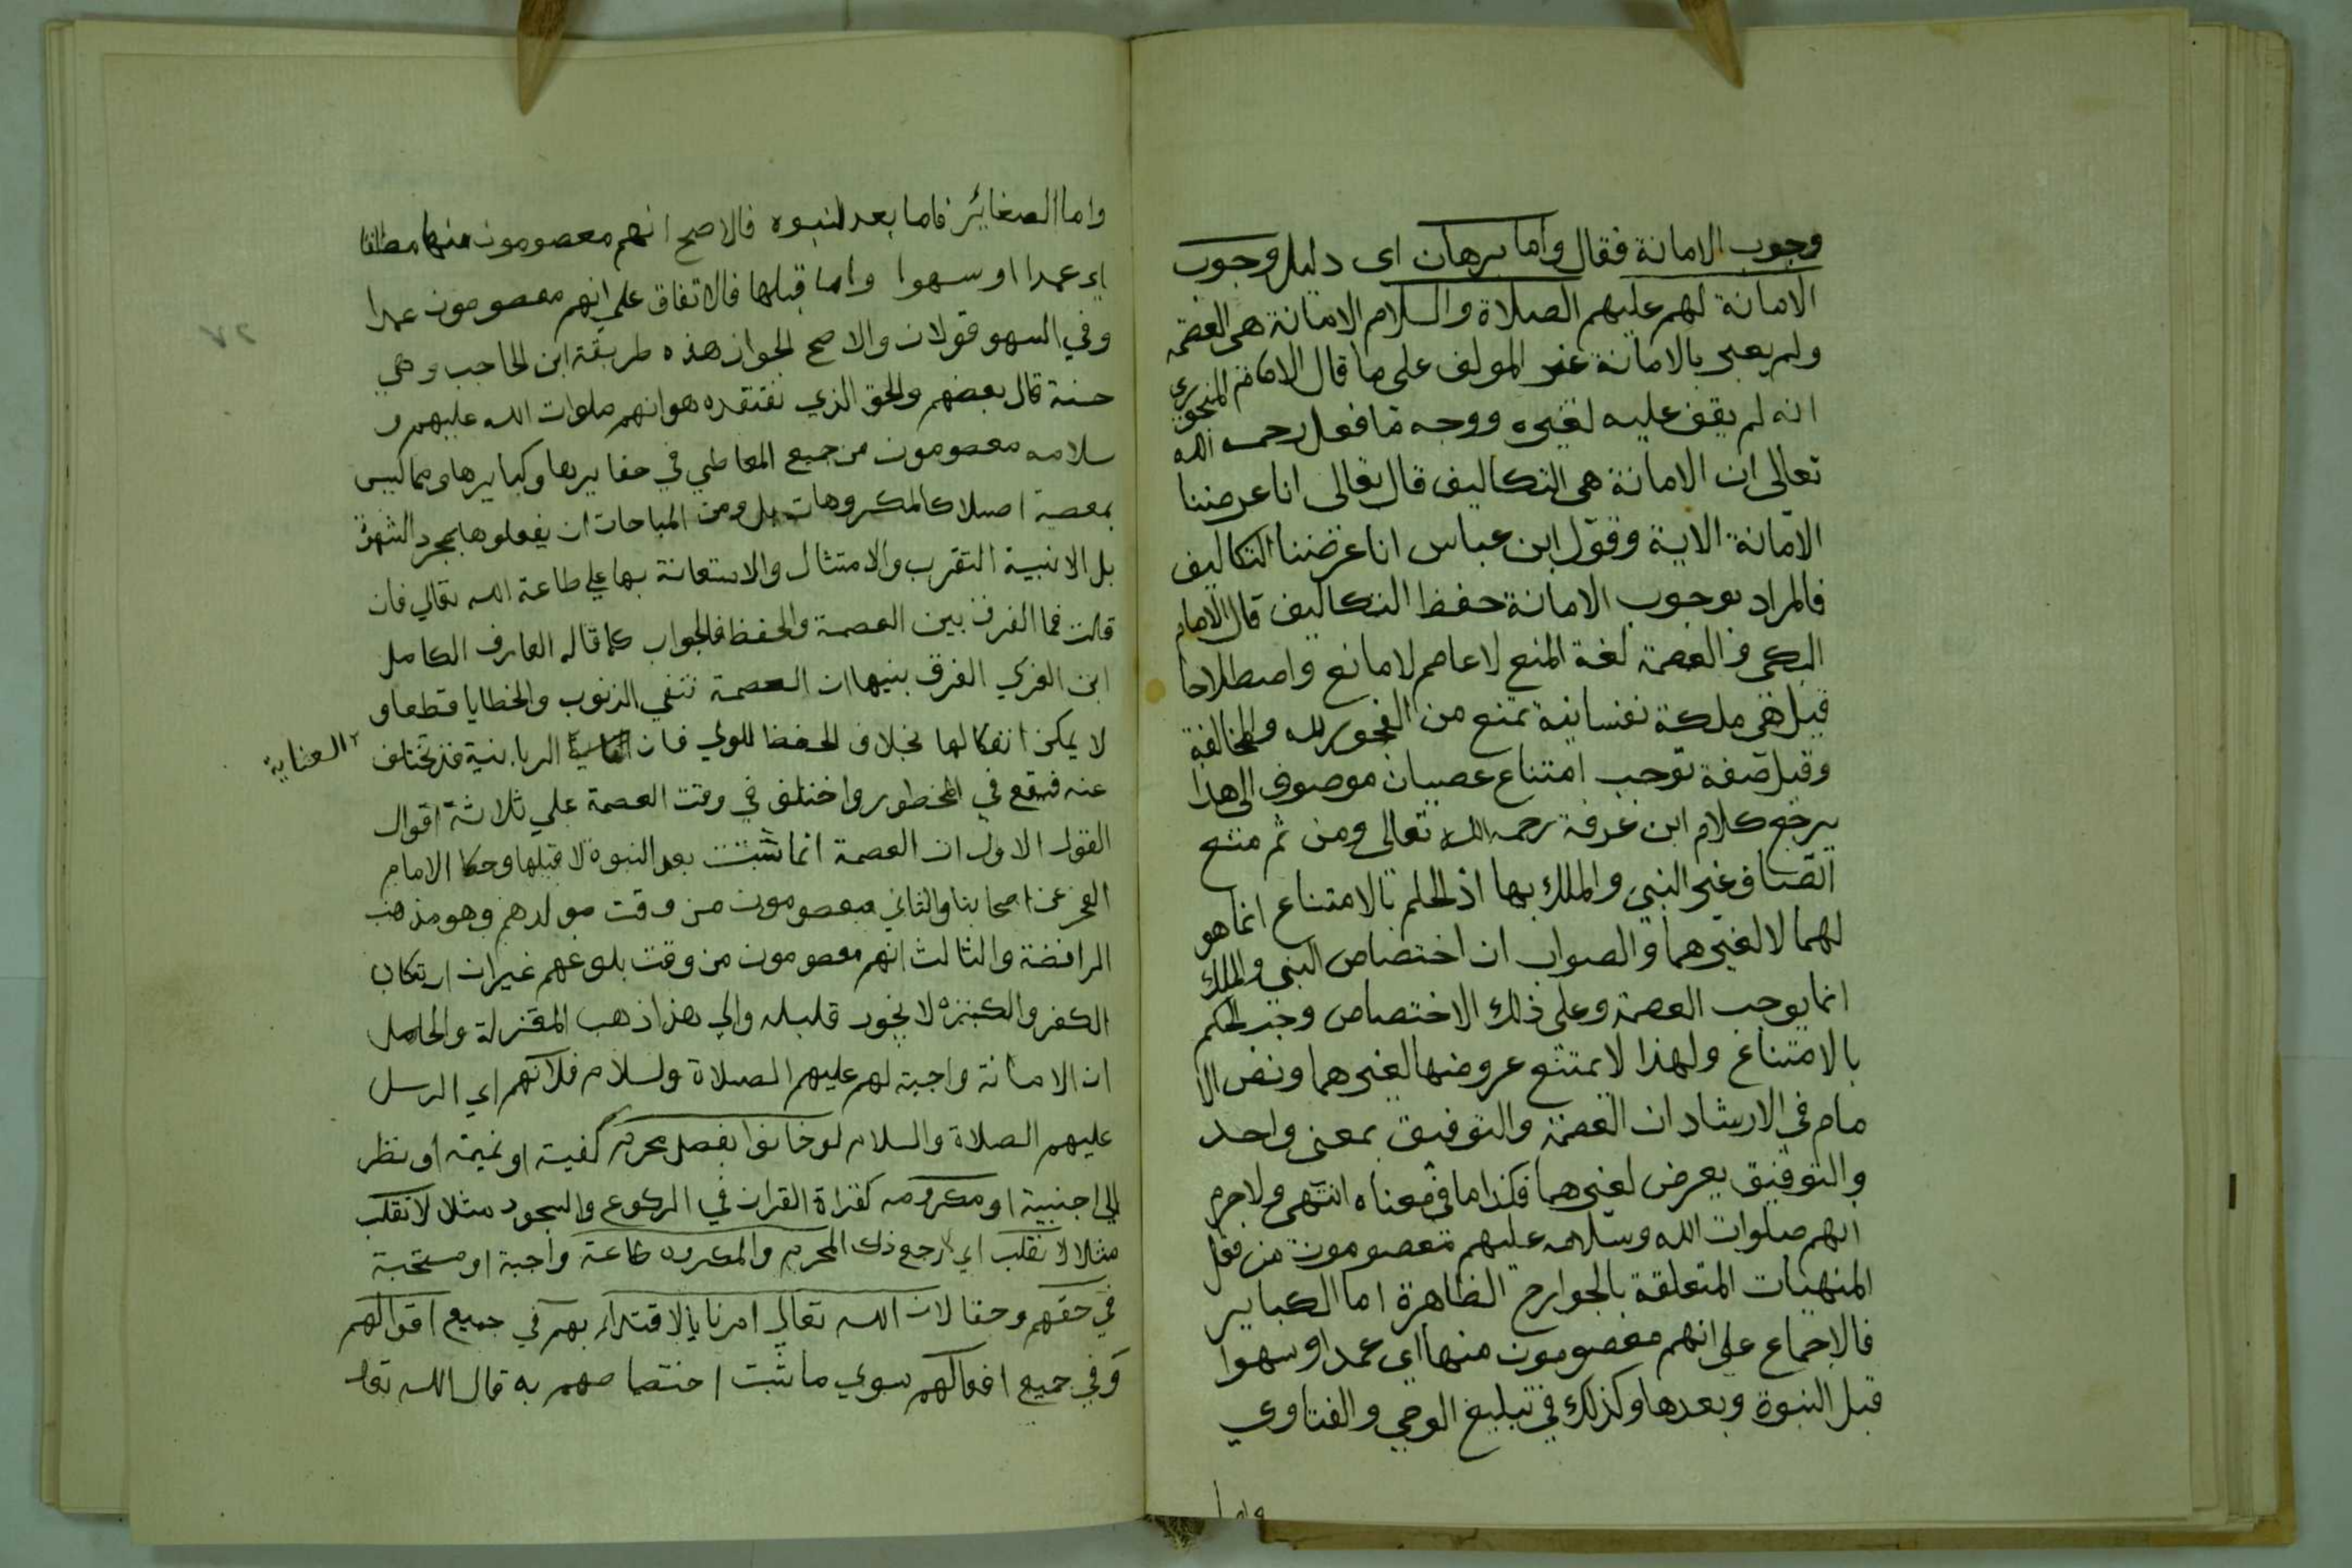 وجوب الامانة فقال واما برهان اى دليل وجوب
الامانة لهم عليهم الصلاة والسلام الامانة هى العصمة
ولم يعبر بالامانة غير المولف على ما قال الامام المنجورى
انه لم يقف عليه لغيره ووجه ما فعل رحمه الله
تعالى ان الامانة هى التكاليف قال تعالى انا عرضنا
الامانة الاية وقول ابن عباس انا عرضنا التكاليف
فالمراد بوجوب الامانة حفظ التكاليف قال الامام
البكى والعصمة لغة المنع لا عاصم لا مانع واصطلاحا
قيل هى ملكة نفسانية تمنع من الفجور لله والمخالفة
وقيل صفة توجب امتناع عصيان موصوف الى هذا
يرجع كلام ابن عرفة رحمه الله تعالى ومن ثم منع
اتصاف غير النبى والملك بها اذ الحلم بالامتناع انما هو
لهما لا لغيرهما والصواب ان اختصاص النبى والملك
انما يوجب العصمة وعلى ذلك الاختصاص وجب الحكم
بالامتناع ولهذا لا يمتنع عروضها لغيرهما ونص الا
مام في الارشاد ان العصمة والتوفيق بمعنى واحد
والتوفيق يعرض لغيرهما فكذا ما فى معناه انتهى ولاجرم
انهم صلوات الله وسلامه عليهم معصومون من فعل
المنهيات المتعلقة بالجوارح الظاهرة اما الكباير
فالاجماع على انهم معصومون منها اى عمدا وسهوا
قبل النبوة وبعدها وكذلك في تبليغ الوحي والفتاوي
واما
واما الصغائر فاما بعد النبوه فالاصح انهم معصومون منها مطلقا
اي عمدا او سهوا واما قبلها فالاتفاق علي انهم معصومون عمدا
وفي السهو قولان والاصح الجواز هذه طريقة ابن الحاجب وهي
حسنة قال بعضهم والحق الذي نعتقده هو انهم صلوات الله عليهم و
سلامه معصومون من جميع المعاصي في صغايرها وكبايرها ومما ليس
بمعصية اصلا كالمكروهات بل ومن المباحات ان يفعلوها بمجرد الشهوة
بل الا بنية التقرب والامتثال والاستعانة بها علي طاعة الله تعالي فان
قلت فما الفرق بين العصمة والحفظ فالجواب كما قاله العارف الكامل
ابن العربي الفرق بينهما ان العصمة تنفي الذنوب والخطايا قطعا و
لا يمكن انفكالها بخلاف الحفظ للولي فان الربانية قد تختلف
العناية
عنه فيقع في المحظور واختلف في وقت العصمة علي ثلاثة اقوال
القول الاول ان العصمة انما تثبت بعد النبوة لا قبلها وحكا الامام
الفخر عن اصحابنا والثاني معصومون من وقت مولدهم وهو مذهب
الرافضة والثالث انهم معصومون من وقت بلوغهم غير ان ارتكاب
الكفر والكبيره لا يجوز قليله والي هذا ذهب المعتزلة والحاصل
ان الامانة واجبة لهم عليهم الصلاة والسلام فلانهم اي الرسل
عليهم الصلاة والسلام لو خانوا بفعل محرم كغيبة او نميمة او نظر
الي اجنبية او مكروه كقراة القران في الركوع والسجود مثلا لانقلب
مثلا لانقلب اي لارجع ذلك المحرم والمكروه طاعة واجبة او مستحبة
في حقهم وحقا لان الله تعالي امرنا بالاقتداء بهم في جميع اقوالهم
وفي جميع افعالهم سوي ما ثبت اختصاصهم به قال الله تعا
٢٧